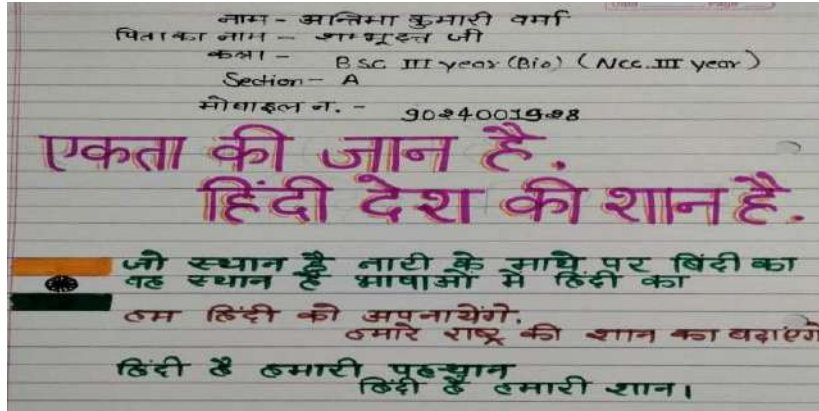 नाम - अन्तिमा कुमारी वर्मा
पिता का नाम - शम्भूदत्त जी
कक्षा - BSC III year (Bio) (Ncc. III year)
Section - A
मोबाइल न. -
एकता की जान है.
हिंदी देश की शान है.
जो स्थान है नारी के माथे पर बिंदी का
वह स्थान है भाषाओं में हिंदी का
हम हिंदी को अपनायेंगे.
हमारे राष्ट्र की शान का बढ़ाएंगे
हिंदी है हमारी पहचान
हिंदी है हमारी शान।